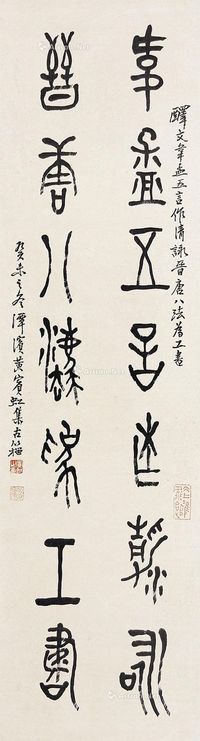 釋文韋孟五言作清詠晉唐八法為工書
韋孟五言作清詠
晉唐八法為工書
癸未之冬潭濱黃賓虹集古籀